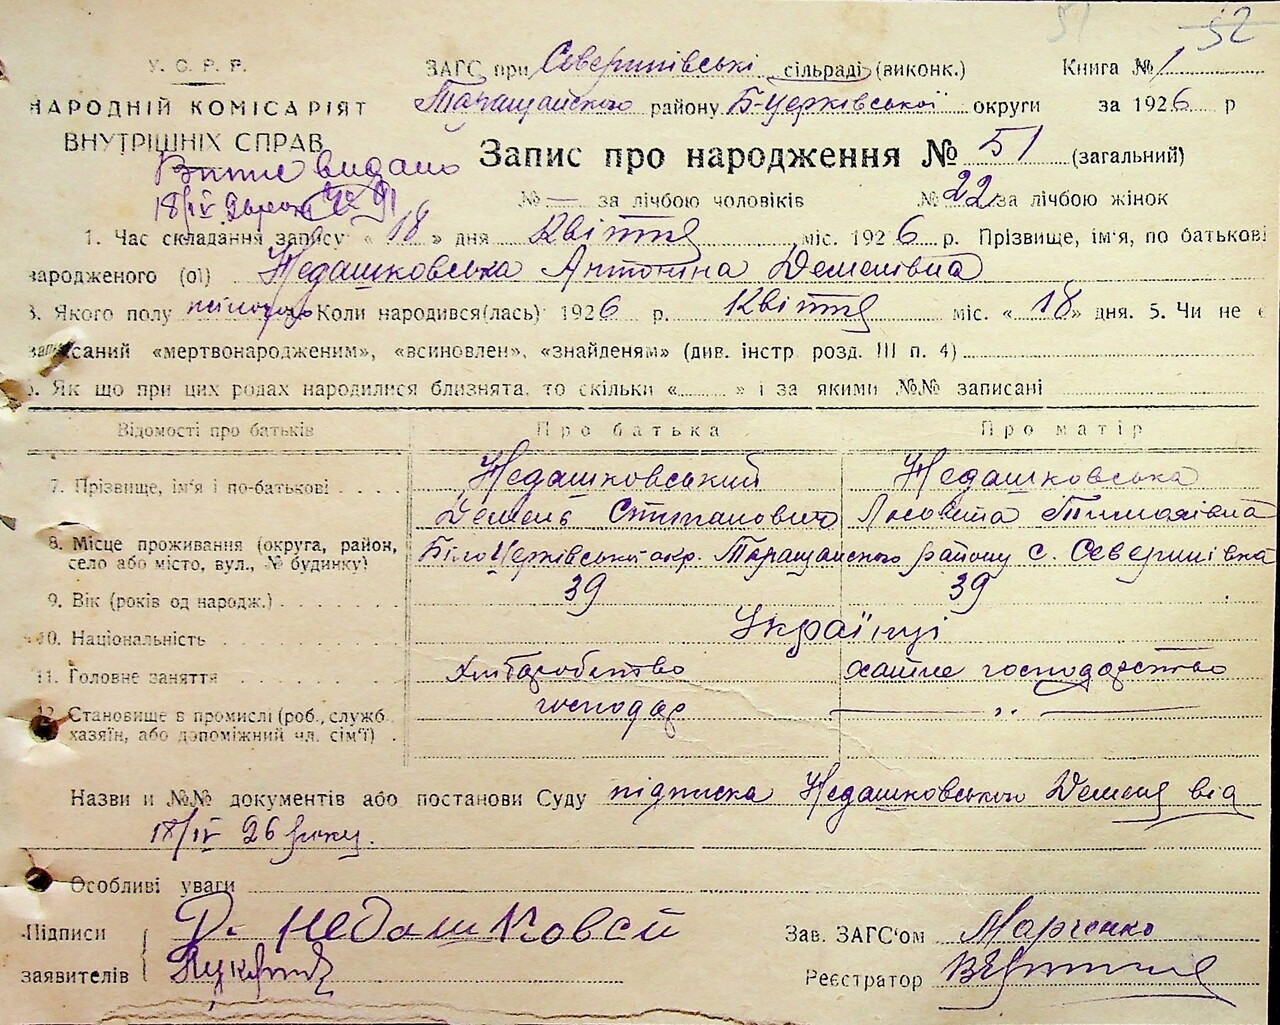 51 52
У. С. Р. Р.
НАРОДНІЙ КОМІСАРІЯТ
ВНУТРІШНІХ СПРАВ
ЗАГС при Северинівські сільраді (виконк.) Книга № 1
Таращанского району Б-Церківської округи за 1926 р
Запис про народження № 51 (загальний)
Витяг видано
18/IV
№ — за лічбою чоловіків № 22 за лічбою жінок
1. Час складання запису „ 18 " дня Квітня міс. 1926 р. Прізвище, ім'я, по батькові
народженого (ої) Недашковська Антоніна Деменівна
3. Якого полу жіночого Коли народився(лась) 1926 р. Квітня міс. „ 18 " дня. 5. Чи не є
записаний «мертвонародженим», «всиновлен», «знайденям» (див. інстр. розд. III п. 4)
6. Як що при цих родах народилися близнята, то скільки «......» і за якими №№ записані
Відомості про батьків Про батька Про матір
7. Прізвище, ім'я і по-батькові Недашковський Недашковська
Демень Степанович Тимохівна
8. Місце проживання (округа, район, село або місто, вул., № будинку) БілоЦерківської окр. Таращанского району с. Северинівка
9. Вік (років од народж.) 39 39
10. Національність Українці
11. Головне заняття Хліборобство хатнє господарство
12. Становище в промислі (роб., служб. господар — „ —
хазяїн, або допоміжний чл. сім'ї)
Назви и №№ документів або постанови Суду підписка Недашковського Деменя від
18/IV 26 року.
Особливі уваги
Підписи Д. Недашковсй Зав. ЗАГС'ом Марченко
заявителів Реєстратор